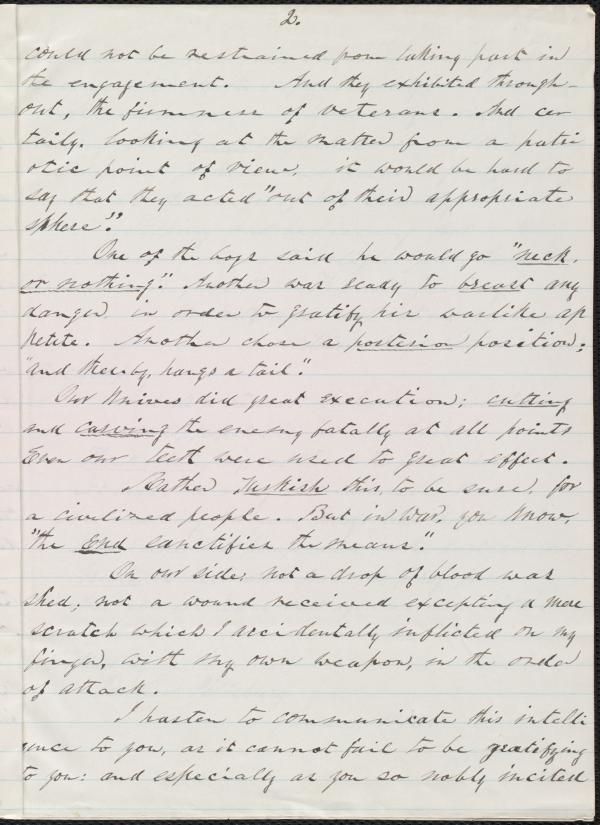 2.
could not be restrained from taking part in
the engagement. And they exhibited through-
out, the firmness of veterans. And cer
taily. looking at the matter from a patri
otic point of view, it would be hard to
say that they acted "out of their appropriate
sphere".
One of the boys said he would go "neck.
or nothing". Another was ready to breast any
danger in order to gratify his warlike ap
petite. Another chose a posterior position;
"and thereby, hangs a tail".
Our Knives did great execution; cutting
and carving the enemy fatally at all points
Even our teeth were used to great effect.
Rather Turkish this, to be sure, for
a civilized people. But in War, you Know,
"the End sanctifies the means".
On our side, not a drop of blood was
shed, not a wound received excepting a mere
scratch which I accidentally inflicted on my
finger, with my own weapon, in the order
of attack.
I hasten to communicate this intelli
gence to you, as it cannot fail to be gratifying
to you: and especially as you so nobly incited